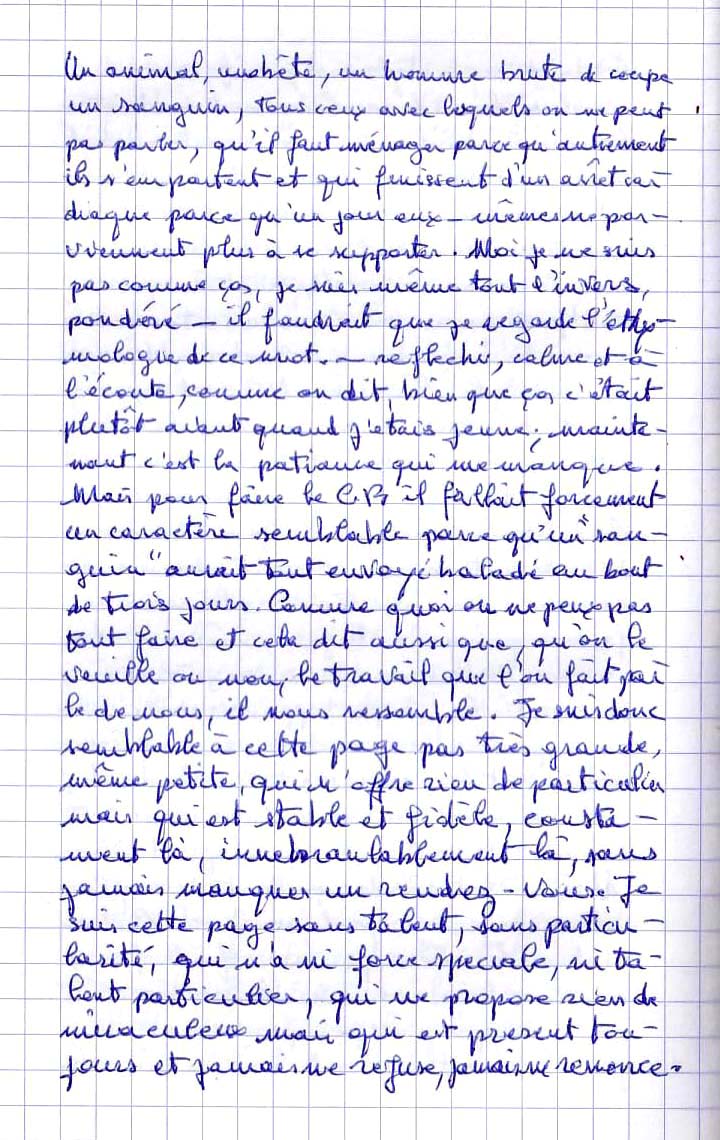 Un animal, une bête, un homme brute de coupe
un sanguin, tous ceux avec lesquels on ne peut
pas parler, qu'il faut ménager parce qu'autrement
ils s'emportent et qui finissent d'un arrêt car
diaque parce qu'un jour eux-mêmes ne par-
viennent plus à se supporter. Moi je ne suis
pas comme ça, je suis même tout l'invers,
pondéré – il faudrait que je regarde l'éthy-
mologie de ce mot. – reflechi, calme et à
l'écoute, comme on dit, bien que ça c'était
plutôt avant quand j'etais jeune; mainte-
nant c'est la patiance qui me manque.
Mais pour faire le C.B il fallait forcement
un caractère semblable parce qu'un "san-
guin" aurait tout envoyé baladé au bout
de trois jours. Comme quoi on ne peux pas
tout faire et cela dit aussi que, qu'on le
veuille ou non, le travail que l'on fait, par
le de nous, il nous ressemble. Je suis donc
semblable à cette page pas très grande,
même petite, qui n'offre rien de particulier
mais qui est stable et fidèle, consta-
ment là, innebranlablement là, sans
jamais manquer un rendez-vous. Je
suis cette page sans talent, sans particu-
larité, qui n'a ni force speciale, ni ta-
lent particulier, qui ne propose rien de
miraculeux mais qui est present tou-
jours et jamais ne refuse, jamais ne renonce.